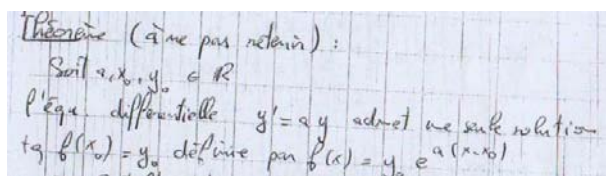 Théorème (à ne pas retenir) :
Soit a, x₀, y₀ ∈ ℝ
l'équ. différentielle y' = a y admet une seule solution
tq f(x₀) = y₀ définie par f(x) = y₀ e^{a(x-x₀)}